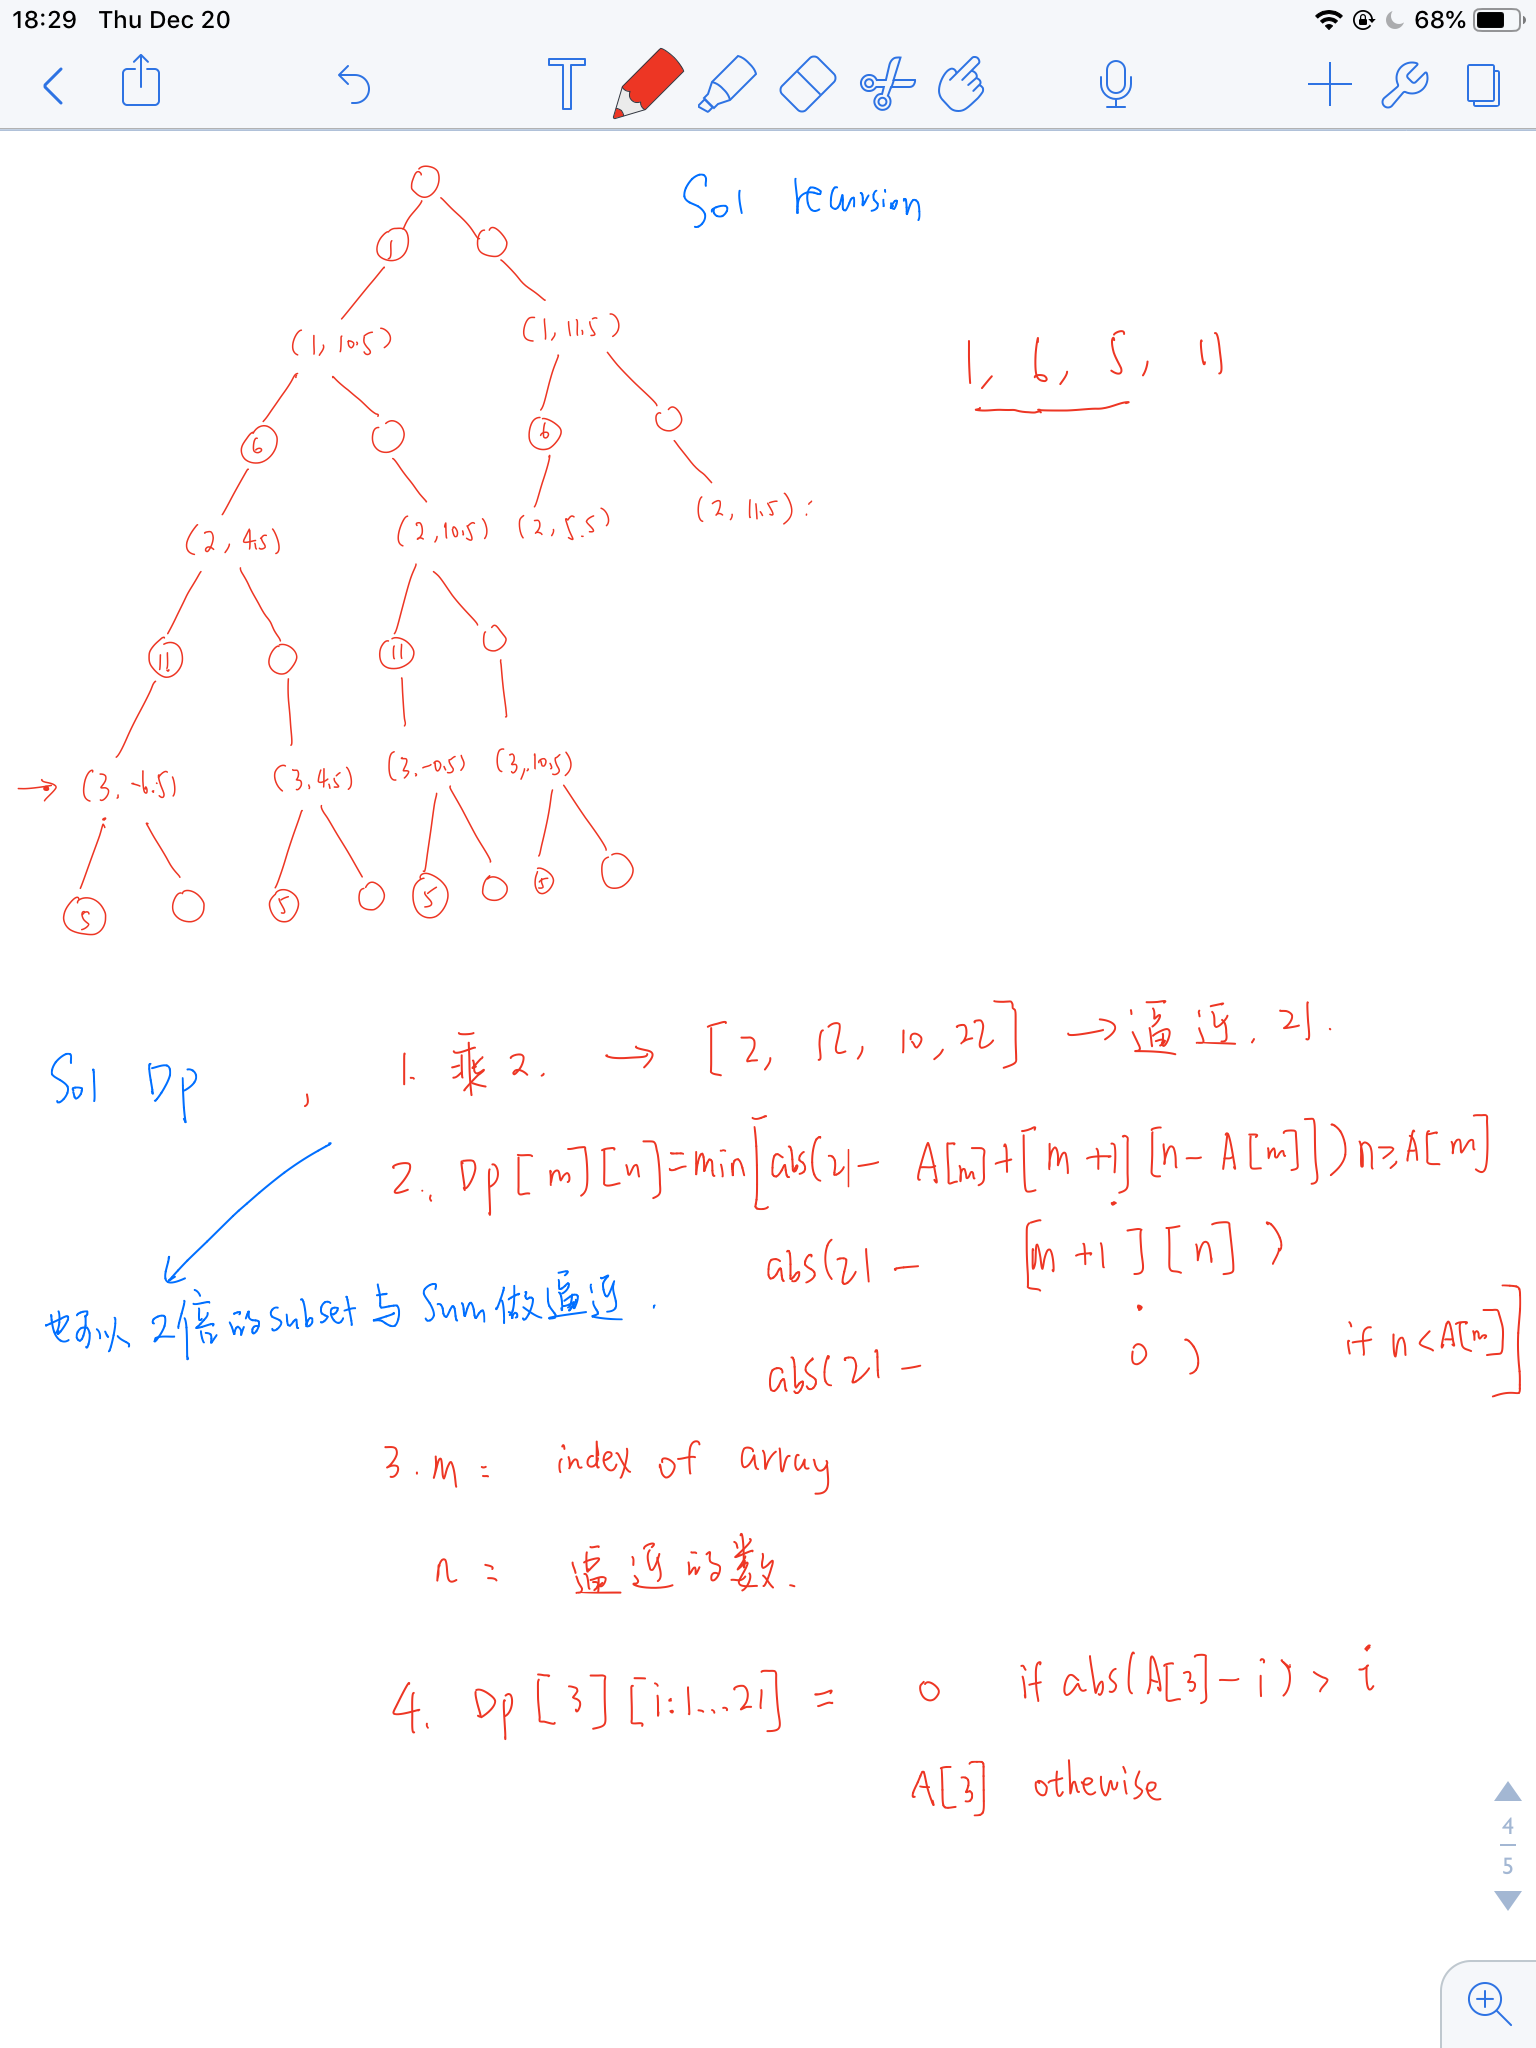 18:29 Thu Dec 20 68%
T
Sol recursion
1
(1, 10.5) (1, 11.5)
1, 6, 5, 11
6 6
(2, 4.5) (2, 10.5) (2, 5.5) (2, 11.5) :
11 11
→ (3, -6.5) (3, 4.5) (3, -0.5) (3, 10.5)
5 5 5 5
Sol Dp , 1. 乘 2. → [2, 12, 10, 22] → 逼近. 21.
2. Dp[m][n]=min[abs(21- A[m]+[m+1][n-A[m]]) n≥A[m]
abs(21 - [m+1][n])
也可以 2倍的subset与Sum做逼近.
abs(21 - 0 ) if n<A[m]]
3. m = index of array
n = 逼近的数.
4. Dp[3][i:1...21] = 0 if abs(A[3]-i) > i
A[3] othewise
4
5